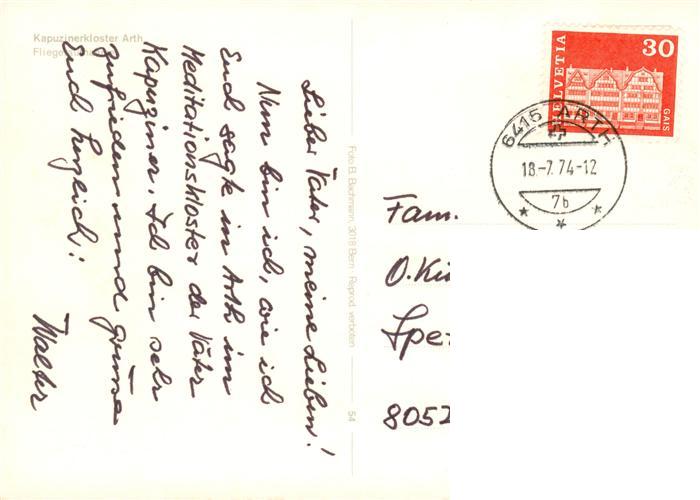 Kapuzinerkloster Arth
Lieber Vater, meine Lieben!
Nun bin ich, wie ich
Euch sagte in Arth im
Meditationskloster der Väter
Kapuziner. Ich bin sehr
zufrieden und grüsse
Euch herzlich:
Walter
Foto B. Bachmann, 3018 Bern · Reprod. verboten
54
HELVETIA
30
GAIS
6415 ARTH
18.-7.74-12
7b
Fam.
O.
8052